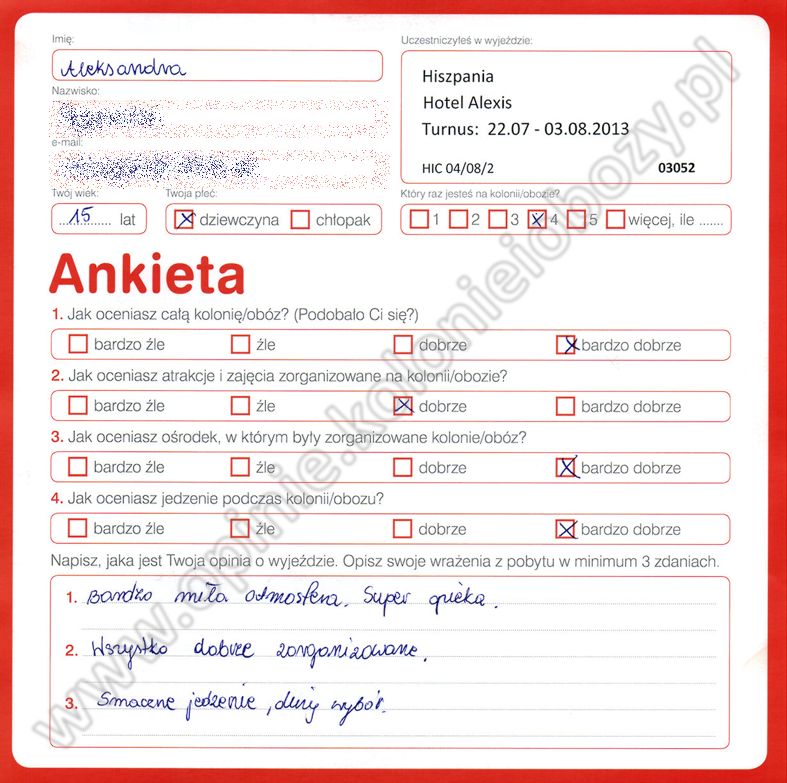 Imię:
Uczestniczyłeś w wyjeździe:
Aleksandra
Hiszpania
Nazwisko:
Hotel Alexis
Turnus: 22.07 - 03.08.2013
e-mail:
HIC 04/08/2 03052
Twój wiek: Twoja płeć: Który raz jesteś na kolonii/obozie?
15 lat dziewczyna chłopak 1 2 3 4 5 więcej, ile .......
Ankieta
1. Jak oceniasz całą kolonię/obóz? (Podobało Ci się?)
bardzo źle źle dobrze bardzo dobrze
2. Jak oceniasz atrakcje i zajęcia zorganizowane na kolonii/obozie?
bardzo źle źle dobrze bardzo dobrze
3. Jak oceniasz ośrodek, w którym były zorganizowane kolonie/obóz?
bardzo źle źle dobrze bardzo dobrze
4. Jak oceniasz jedzenie podczas kolonii/obozu?
bardzo źle źle dobrze bardzo dobrze
Napisz, jaka jest Twoja opinia o wyjeździe. Opisz swoje wrażenia z pobytu w minimum 3 zdaniach.
1. Bardzo miła atmosfera. Super opieka.
2. Wszystko dobrze zorganizowane.
3. Smaczne jedzenie, duży wybór.
www.opinie.kolonieiobozy.pl